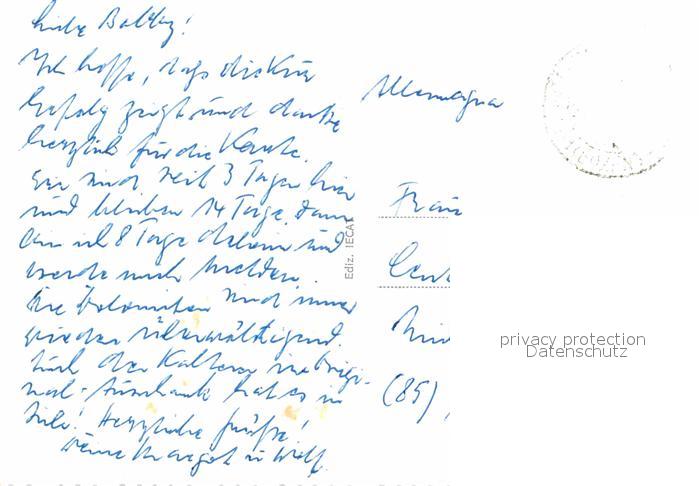 Liebe Baltha!
Ich hoffe, dass die Kur
Erfolg zeigt und danke
herzlich für die Karte.
Wir sind seit 3 Tagen hier
und bleiben 14 Tage. Dann
bin ich 8 Tage daheim und
werde mich melden.
Die Dolomiten sind immer
wieder überwältigend.
Und der Kalterer im Origi-
nal-Ausschank hat es in
sich! Herzliche Grüße!
Deine Margot u Wolf
Allemagna
Frau
(85)
Ediz. IECA
privacy protection
Datenschutz